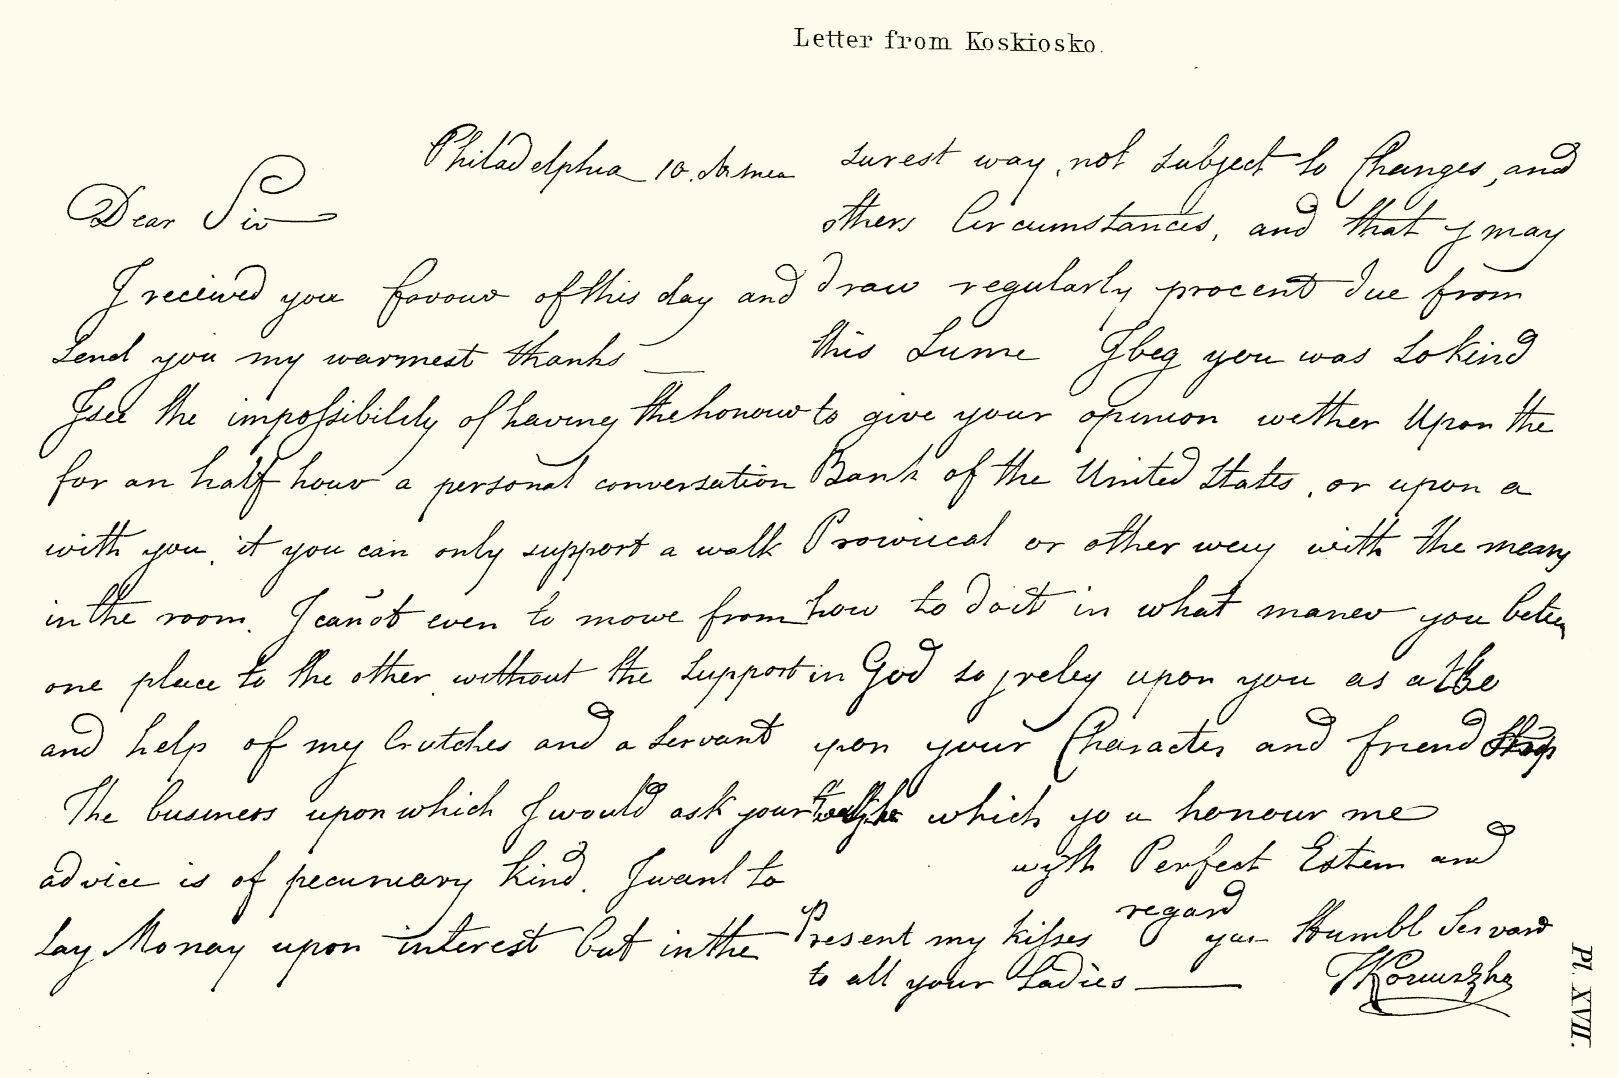 Letter from Koskiosko.
Philadelphia 10.
Dear Sir
I received you favour of this day and
send you my warmest thanks
I see the impossibility of having the honour
for an half hour a personal conversation
with you, it you can only support a walk
in the room. I canot even to move from
one place to the other without the support
and help of my Crutches and a servant
The business upon which I would ask your
advice is of pecuniary kind. I want to
Lay Monay upon interest but in the
surest way, not subject to Changes, and
others Circumstances, and that I may
draw regularly procent due from
this sume I beg you was so kind
to give your opinion wether Upon the
Bank of the United States, or upon a
or other wey with the
how to do it in what maner you
in God so I reley upon you as
upon your Character and friend
which you honour me
wyth Perfect Estem and
regard
your Humbl Servard
Present my kisses
to all your Ladies
Pl. XVII.